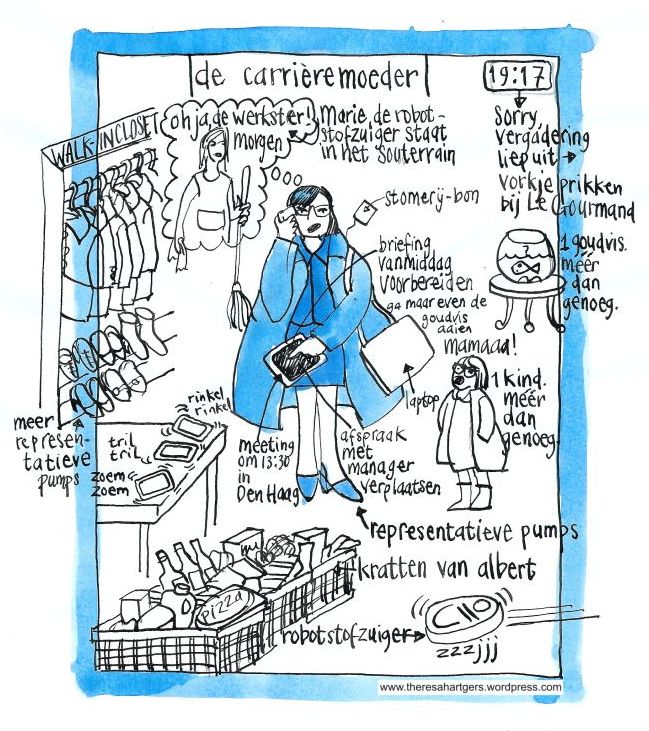 de carrièremoeder
19:17
Sorry,
vergadering
liep uit
vorkje prikken
bij Le Gourmand
WALK-IN CLOSET
oh ja, de werkster!
morgen
Marie, de robot-
stofzuiger staat
in het souterrain
stomerij-bon
briefing
vanmiddag
voorbereiden
ga maar even de
goudvis
aaien
mamaaa!
1 goudvis.
méér
dan
genoeg.
1 kind.
méér
dan
genoeg
laptop
meer
represen-
tatieve
pumps
rinkel
rinkel
tril
tril
zoem
zoem
meeting
om 13:30
in
Den Haag
afspraak
met
manager
verplaatsen
representatieve pumps
kratten van albert
pizza
robotstofzuiger
zzzjjj
www.theresahartgers.wordpress.com